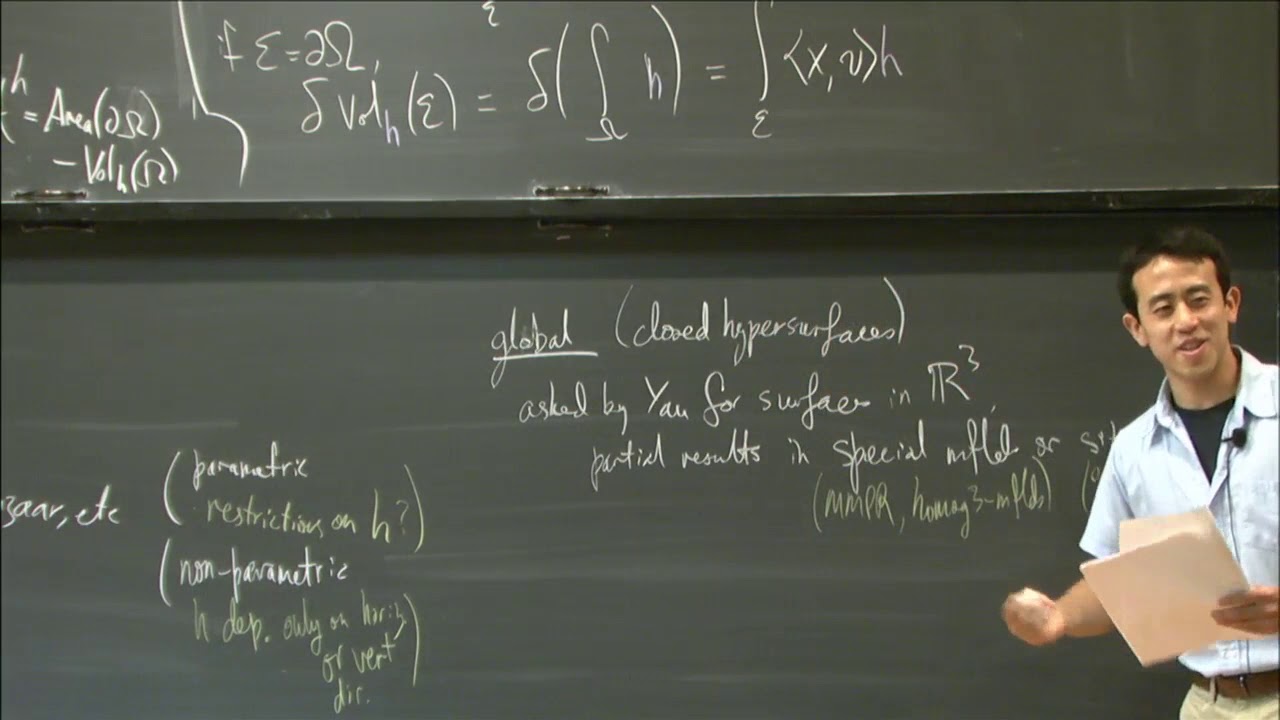 h
= Area(∂Ω)
- Vol_h(Ω)
if Σ = ∂Ω,
Σ
δ Vol_h(Σ) = δ(∫_Ω h) = ∫_Σ ⟨X, ν⟩h
global (closed hypersurfaces)
asked by Yau for surfaces in ℝ³
partial results in special mflds or
(MMPR, homog 3-mflds) (
zaar, etc
(parametric
restrictions on h?)
(non-parametric
h dep. only on horiz
or vert
dir.)